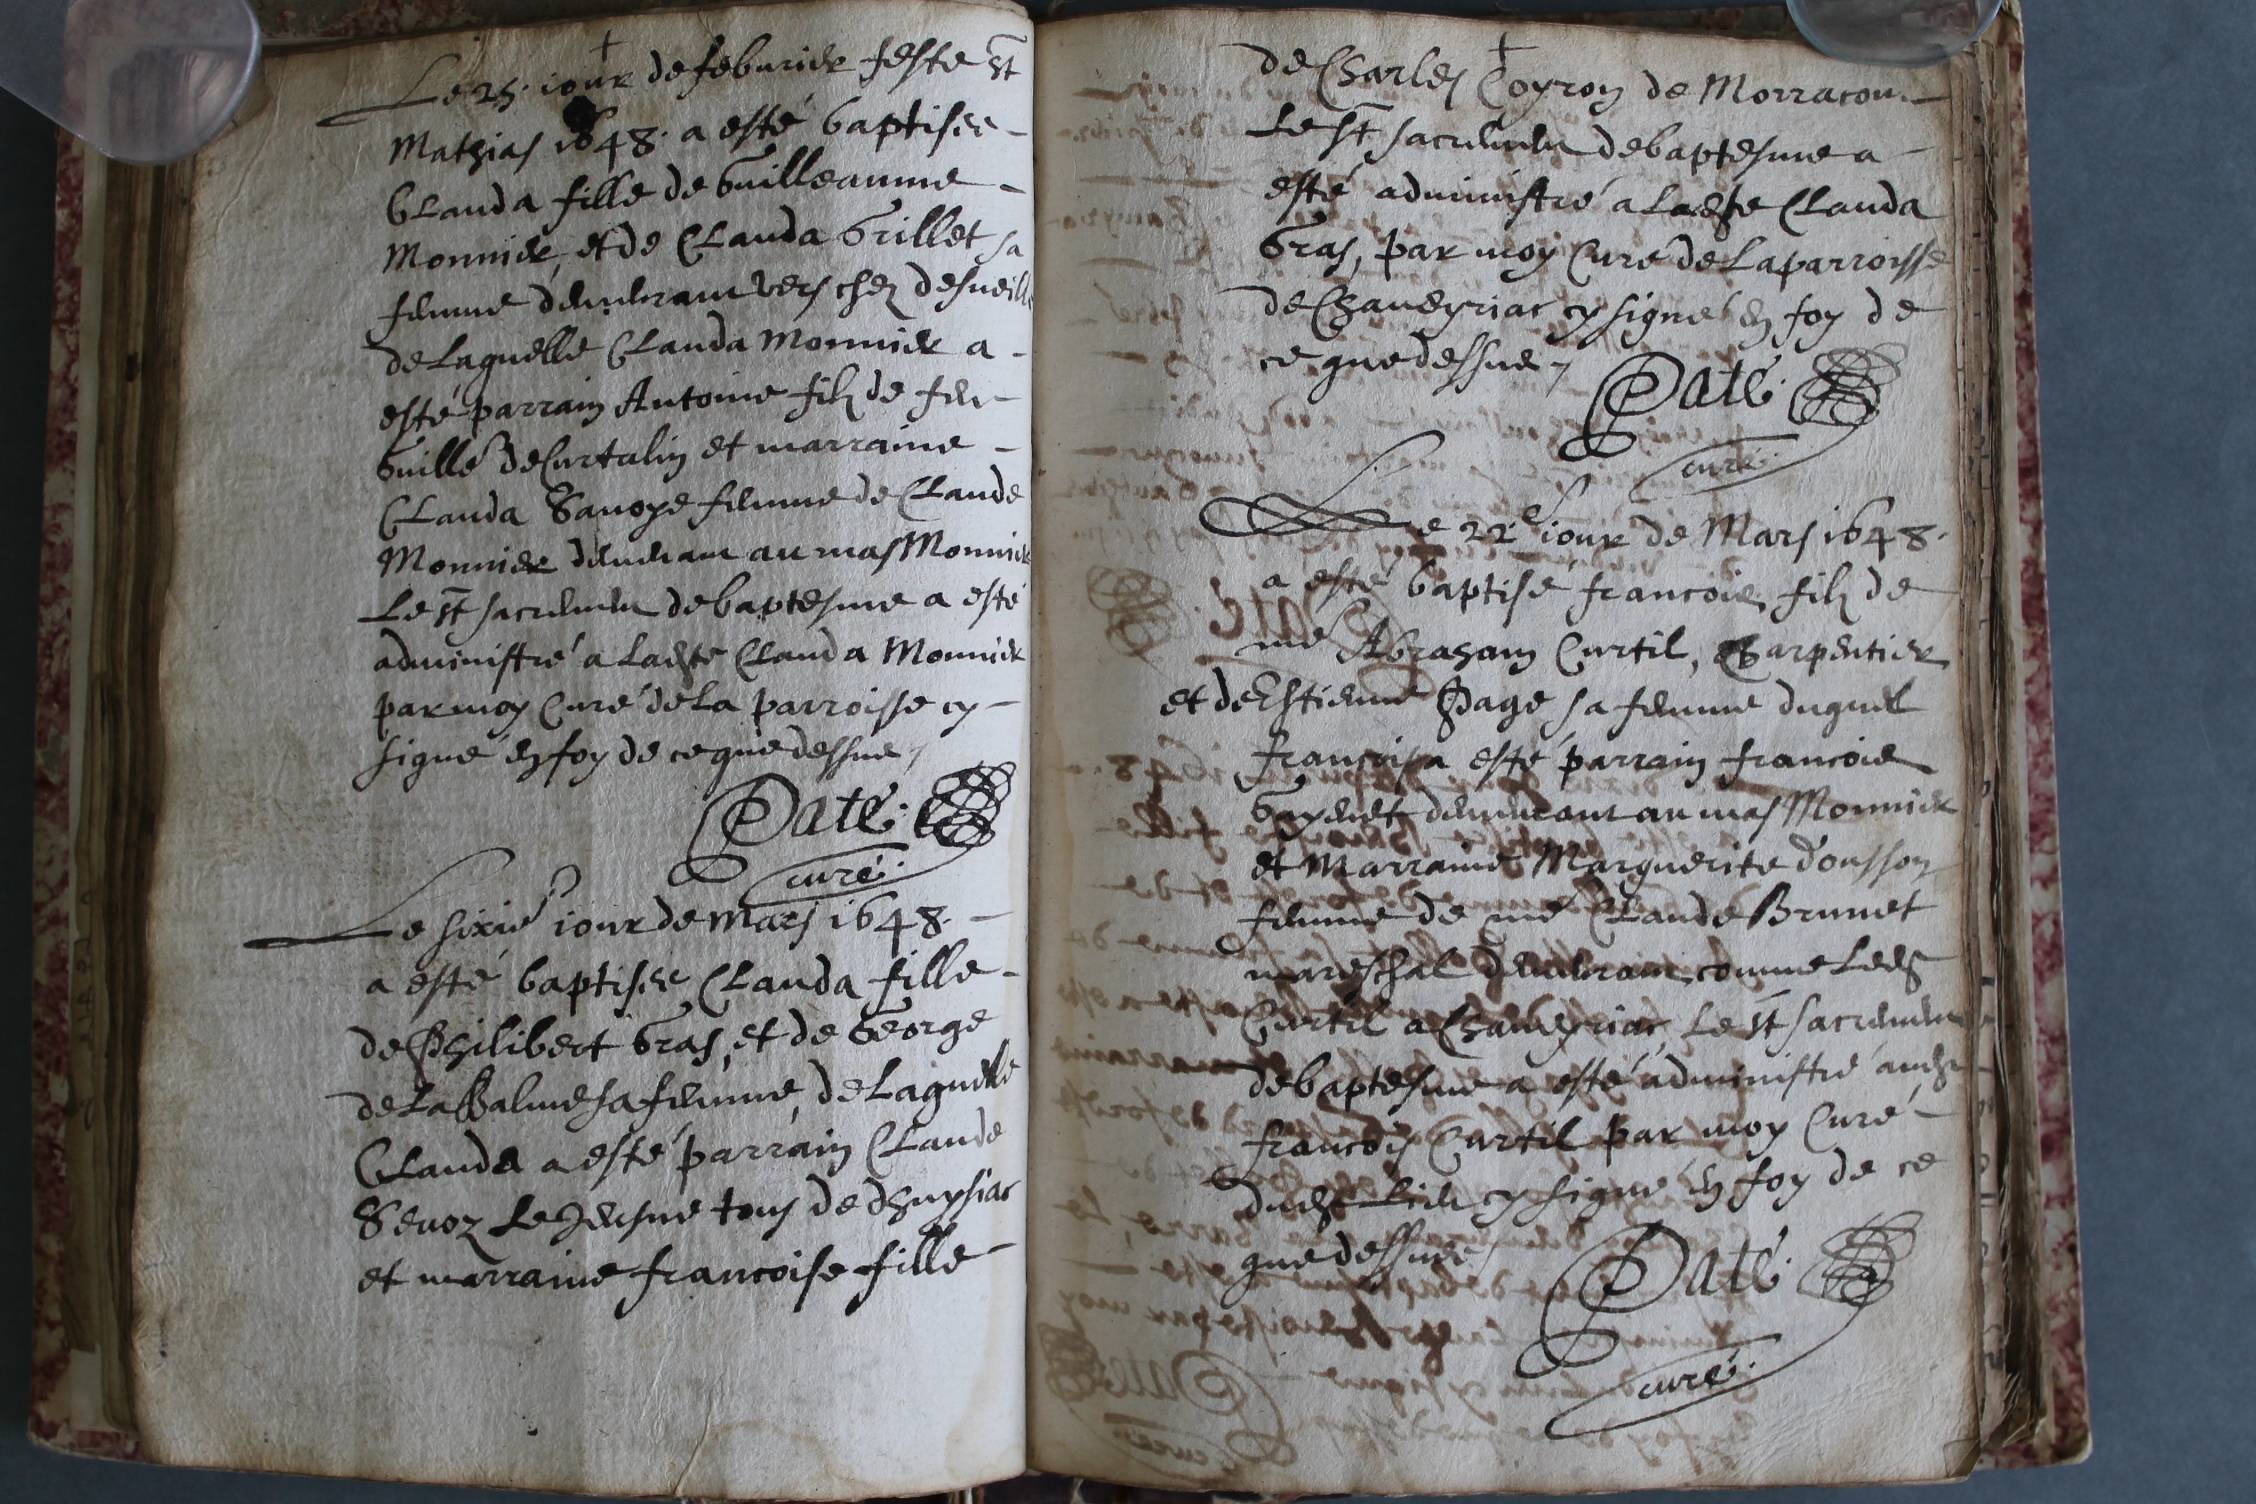 Le 25. iour de feburier feste st
Mathias 1648. a esté baptisee
Clauda fille de Guilleaume
Monnier, et de Clauda Grillet sa
femme demeurant vers chez
de laquelle Clauda Monnier a
esté parrain Antoine filz de feu
Guille de Curtalin et marraine
Clauda Sauoye femme de Claude
Monnier demeurant au mas Monnier
Le st sacrement de baptesme a esté
administré a ladte Clauda Monnier
par moy Curé de la parroisse cy
signé en foy de ce que dessus
Daté.
curé.
Le sixie iour de Mars 1648.
a esté baptisee Clauda fille
de Philibert Gras, et de George
de la Balme sa femme, de laquelle
Clauda a esté parrain Claude
Seuoz le Jeusne tous de dhuysiac
et marraine francoise fille
de Charles Coyron de Morracou
Le st sacrement de baptesme a
esté administré a ladte Clauda
Gras, par moy Curé de la parroisse
de Chaueyriac cy signé en foy de
ce que dessus
Daté.
curé.
Le 22e iour de Mars 1648.
a esté baptisé francois filz de
me Abraham Curtil, Charpentier
et de Estienne Page sa femme duquel
francois a esté parrain francois
Gayenet demeurant au mas Monnier
et Marraine Marguerite Dousson
femme de me Claude Brunet
mareschal demeurant comme ledt
Curtil a Chaueyriac, Le st sacrement
de baptesme a esté administré audt
francois Curtil par moy Curé
dudt Lieu cy signé en foy de ce
que dessus
Daté.
curé.